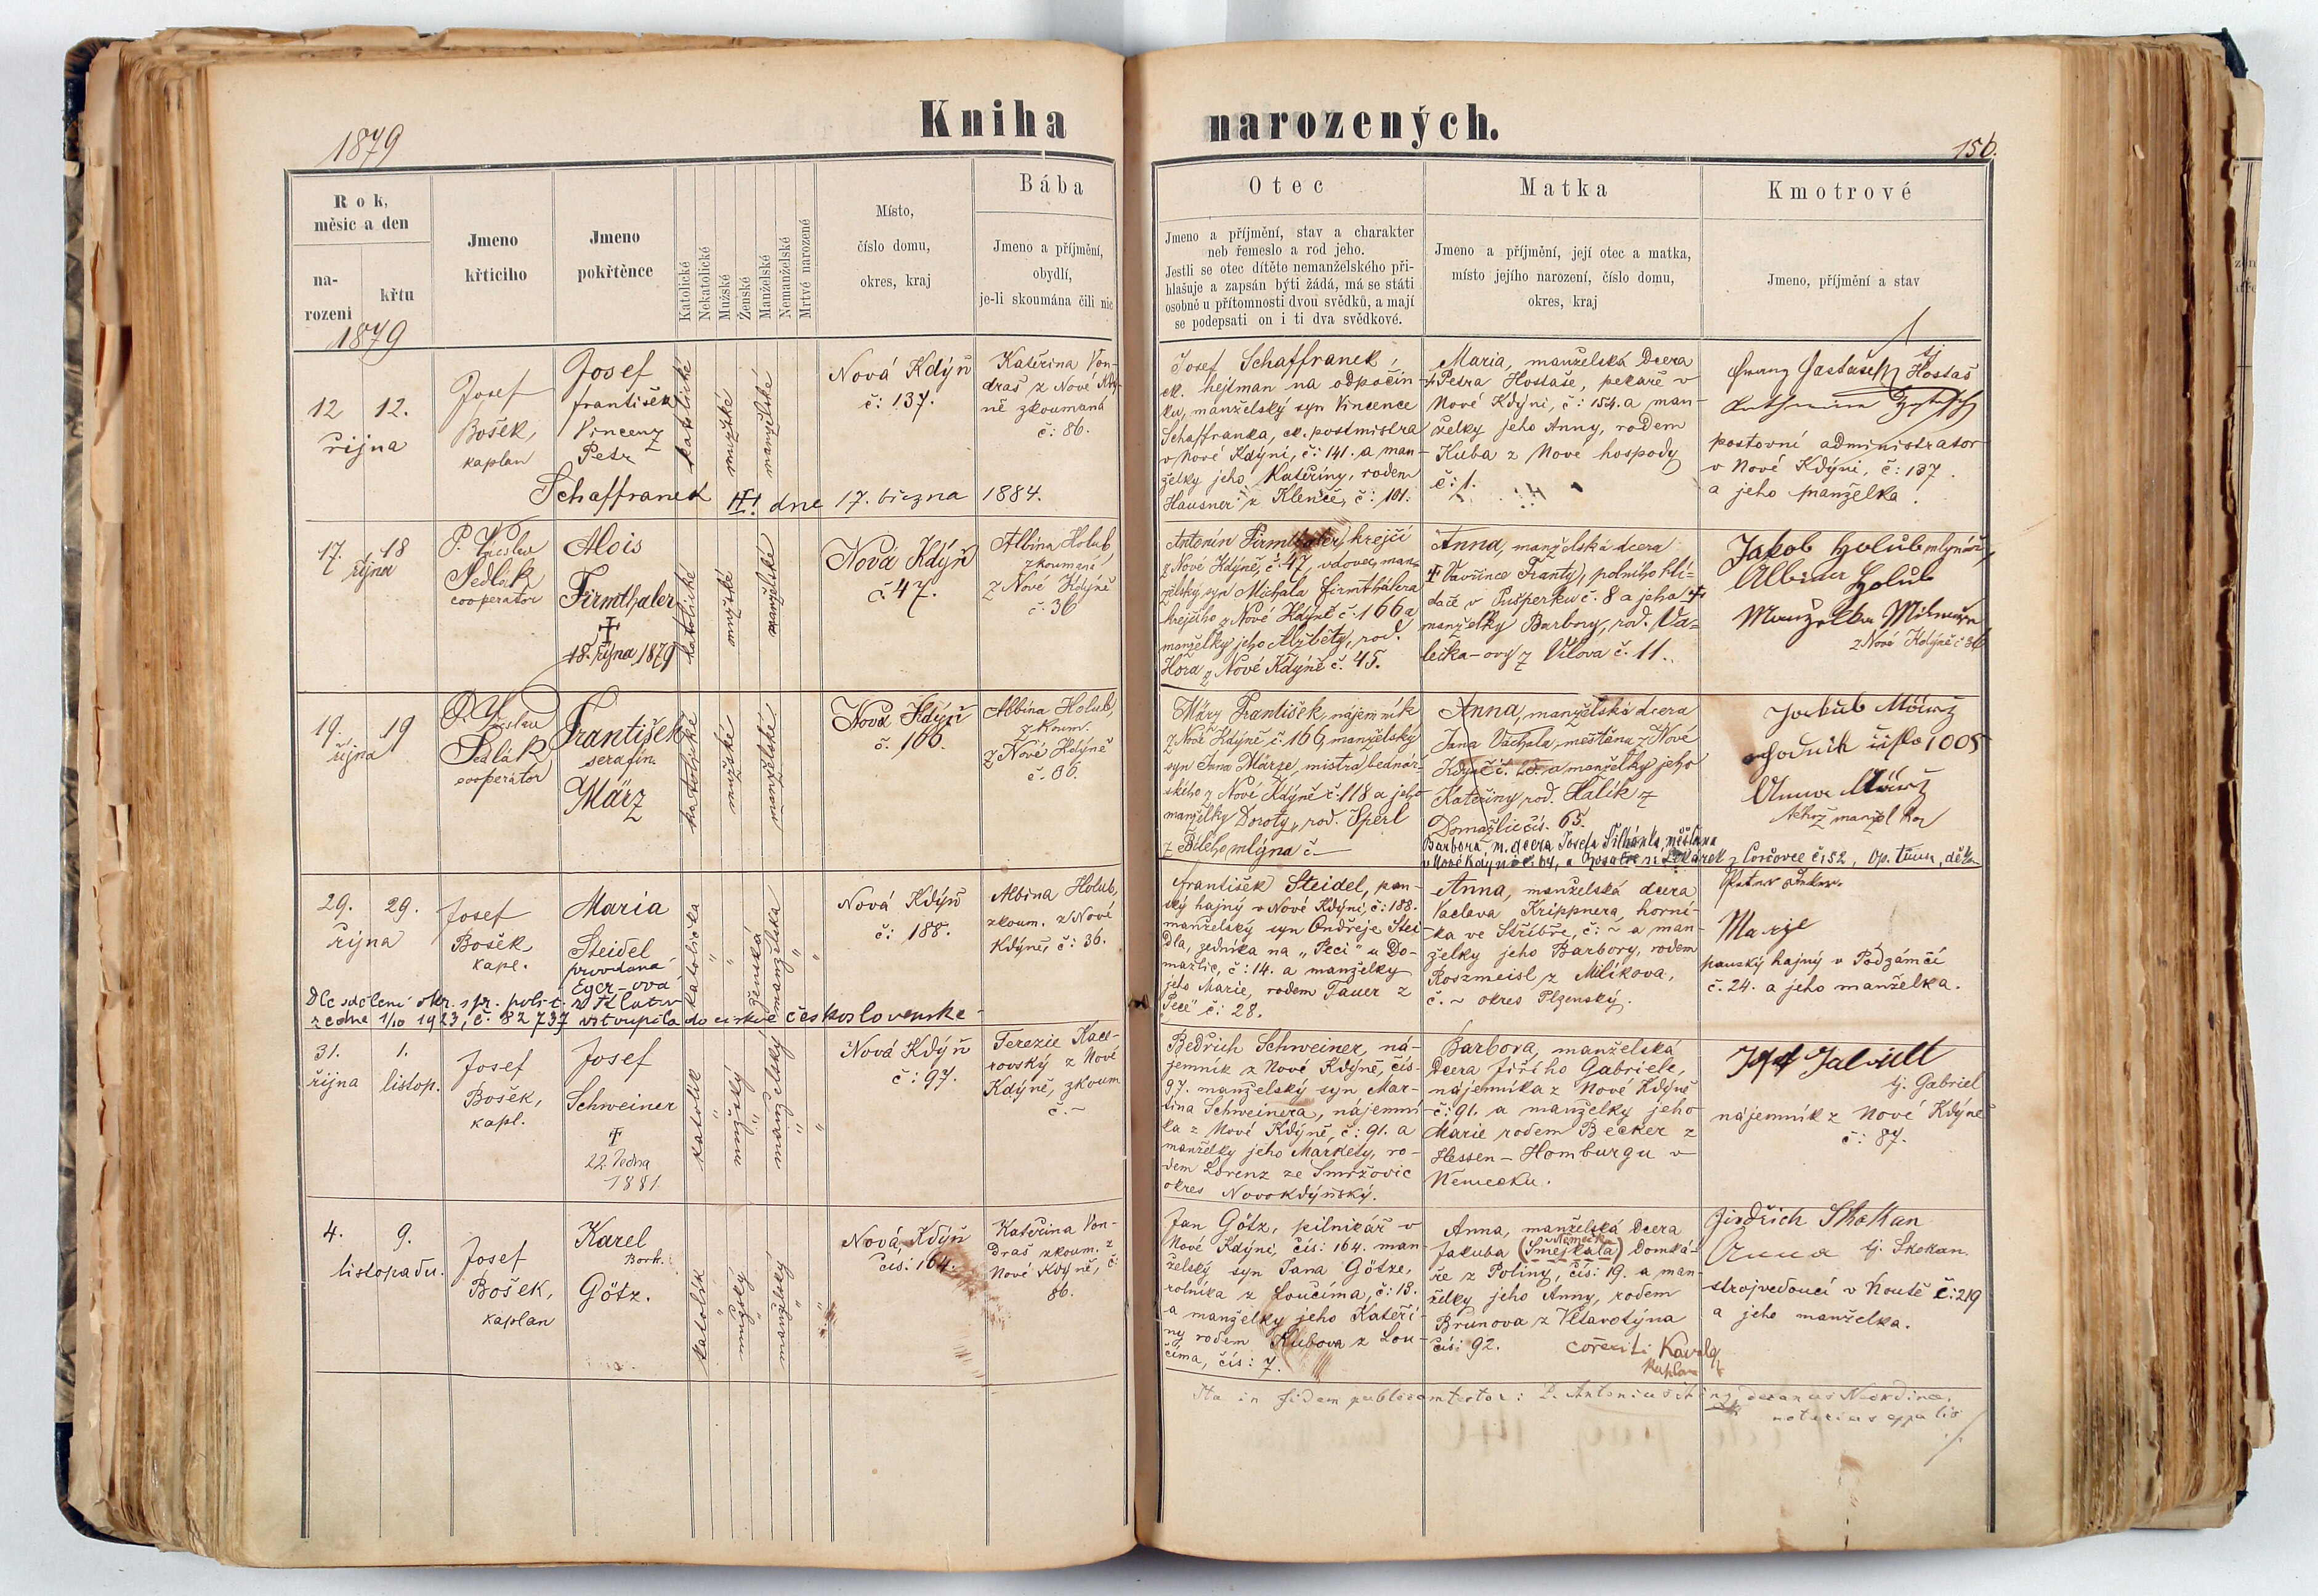 Kniha narozených.
1879
156.
Rok,
měsíc a den
na-
rozeni
křtu
1879
Jmeno
křticiho
Jmeno
pokřtěnce
Katolické
Nekatolické
Mužské
Ženské
Manželské
Nemanželské
Mrtvé narozené
Místo,
číslo domu,
okres, kraj
Bába
Jmeno a příjmění,
obydlí,
je-li skoumána čili nic
Otec
Jmeno a příjmění, stav a charakter
neb řemeslo a rod jeho.
Jestli se otec dítěte nemanželského při-
hlašuje a zapsán býti žádá, má se státi
osobně u přítomnosti dvou svědků, a mají
se podepsati on i ti dva svědkové.
Matka
Jmeno a příjmění, její otec a matka,
místo jejího narození, číslo domu,
okres, kraj
Kmotrové
Jmeno, příjmění a stav
12 12.
října
Josef
Bošek,
kaplan
Josef
František
Vincenz
Petr
Schaffranek
katolické
mužské
manželské
dne 17. března 1884.
Nová Kdýň
č: 137.
Kateřina Von-
draš z Nové Kdý-
ně zkoumaná
č: 86.
Josef Schaffranek,
ck. hejtman na odpočin-
ku, manželský syn Vincence
Schaffranka, ck. postmistra
v Nové Kdýni, č: 141. a man-
želky jeho Kateřiny, rodem
Hausner z Klenče, č: 101.
Maria, manželská Dcera
+ Petra Hostaše, pekaře v
Nové Kdýni, č: 154. a man-
želky jeho Anny, rodem
Kuba z Nové hospody
č: 1.
tj.
Hostaš
postovní administrator
v Nové Kdýni, č: 137.
a jeho manželka.
17. 18
října
P.
Sedlák
cooperator
Alois
Firmthaler
18. října 1879
katolické
mužské
manželské
Nová Kdýň
č. 47.
Albina Holub,
zkoumaná
z Nové Kdýně
č. 36
Antonín Firmthaler, krejčí
z Nové Kdýně, č. 47, vdovec, man-
želský syn Michala Firmthalera
krejčího z Nové Kdýně č. 166 a
manželky jeho Alžběty, rod.
Hora z Nové Kdýně č. 45.
Anna, manželská dcera
Vavřince Franty, polního hlí-
dače v Pušperku č. 8 a jeho
manželky Barbory, rod. Va-
lečka-ovy z Vílova č. 11.
Jakob Holub mlynář,
Albina Holub
Manželka
z Nové Kdýně č 36
19. 19
října
P.
Sedlák
cooperator
František
serafín.
März
katolické
mužské
manželské
Nová Kdýň
č. 166.
Albina Holub,
zkoum.
z Nové Kdýně
č. 36.
März František, nájemník
z Nové Kdýně, č. 166, manželský
syn Jana Märze, mistra bednář-
ského z Nové Kdýně č. 118 a jeho
manželky Doroty, rod. Šperl
z Bílého mlýna č —
Anna, manželská dcera
Jana Váchala, měšťana z Nové
a manželky jeho
Kateřiny, rod. Halík z
Domažlic čís. 65.
Barbora, m. dcera Josefa Šilhánka, měšťana
Jakub März
číslo 1005
Anna März
29. 29.
října
Josef
Bošek,
kapl.
Maria
Steidel
provdaná
Eger-ová
katolička
ženská
manželská
Nová Kdýň
č: 188.
Albina Holub,
zkoum. z Nové
Kdýně, č: 36.
František Steidel, pan-
ský hajný v Nové Kdýni, č: 188.
manželský syn Ondřeje Stei-
dla, zedníka na „Peci“ u Do-
mažlic, č: 14. a manželky
jeho Marie, rodem Tauer z
„Pece“ č: 28.
Anna, manželská dcera
Vaclava Krippnera, horní-
ka ve Stříbře, č: ~ a man-
želky jeho Barbory, rodem
Roszmeisl z Milíkova,
č. ~ okres Plzenský.
Marie
panský hajný v Podzámčí
č. 24. a jeho manželka.
Dle sdělení okr. spr. polit.
ze dne 1/10 1923, č. 82737 vstoupila do církve československé
31. 1.
října listop.
Josef
Bošek,
kapl.
Josef
Schweiner
22. ledna
1881.
katolík
mužský
manželský
Nová Kdýň
č: 97.
Terezie Kace-
rovský z Nové
Kdýně, zkoum
č. ~
Bedřich Schweiner, ná-
jemník z Nové Kdýně, čís.
97. manželský syn Mar-
tina Schweinera, nájemní-
ka z Nové Kdýně, č: 91. a
manželky jeho Markety, ro-
dem Lorenz ze Smržovic
okres Novokdýňský.
Barbora, manželská
Dcera Jiřího Gabriele,
nájemníka z Nové Kdýně
č: 91. a manželky jeho
Marie rodem Becker z
Hessen-Homburgu v
Německu.
tj. Gabriel
nájemník z Nové Kdýně
č: 87.
4. 9.
listopadu.
Josef
Bošek,
kaplan
Karel
Bork.
Götz.
katolík
mužský
manželský
Nová Kdýň
čís: 164.
Kateřina Von-
draš zkoum. z
Nové Kdyně, č:
86.
Jan Götz, pilnikář v
Nové Kdýni, čís: 164. man-
želský syn Jana Götze,
rolníka z Loučíma, č: 13.
a manželky jeho Kateři-
ny rodem Kubova z Lou-
číma, čís: 7.
Anna, manželská Dcera
Jakuba (Smejkala) Domká-
ře z Poliny, čís: 19. a man-
želky jeho Anny, rodem
Brunova z Vltavotýna
čís: 92.
Jindřich Skokan
Anna tj. Skokan.
strojvedoucí v Koutě č: 219
a jeho manželka.
Kaplan
Ita in fidem publicam testor: P. Antonius